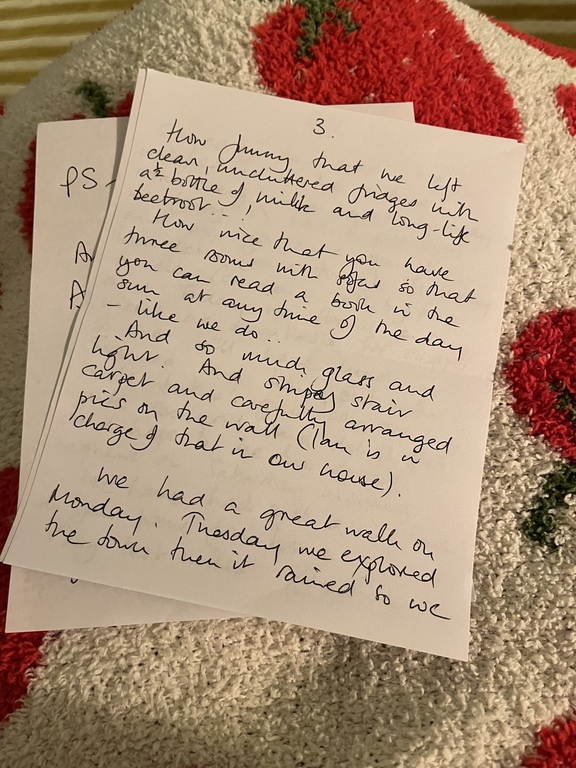 3.
How funny that we left
clean, uncluttered fridges with
a ½ bottle of milk and long-life
beetroot...!
How nice that you have
three rooms with sofas so that
you can read a book in the
sun at any time of the day
- like we do...
And so much glass and
light. And stripey stair
carpet and carefully arranged
pics on the wall (Ian is in
charge of that in our house).
We had a great walk on
Monday. Tuesday we explored
the town then it rained so we
PS -
A
A